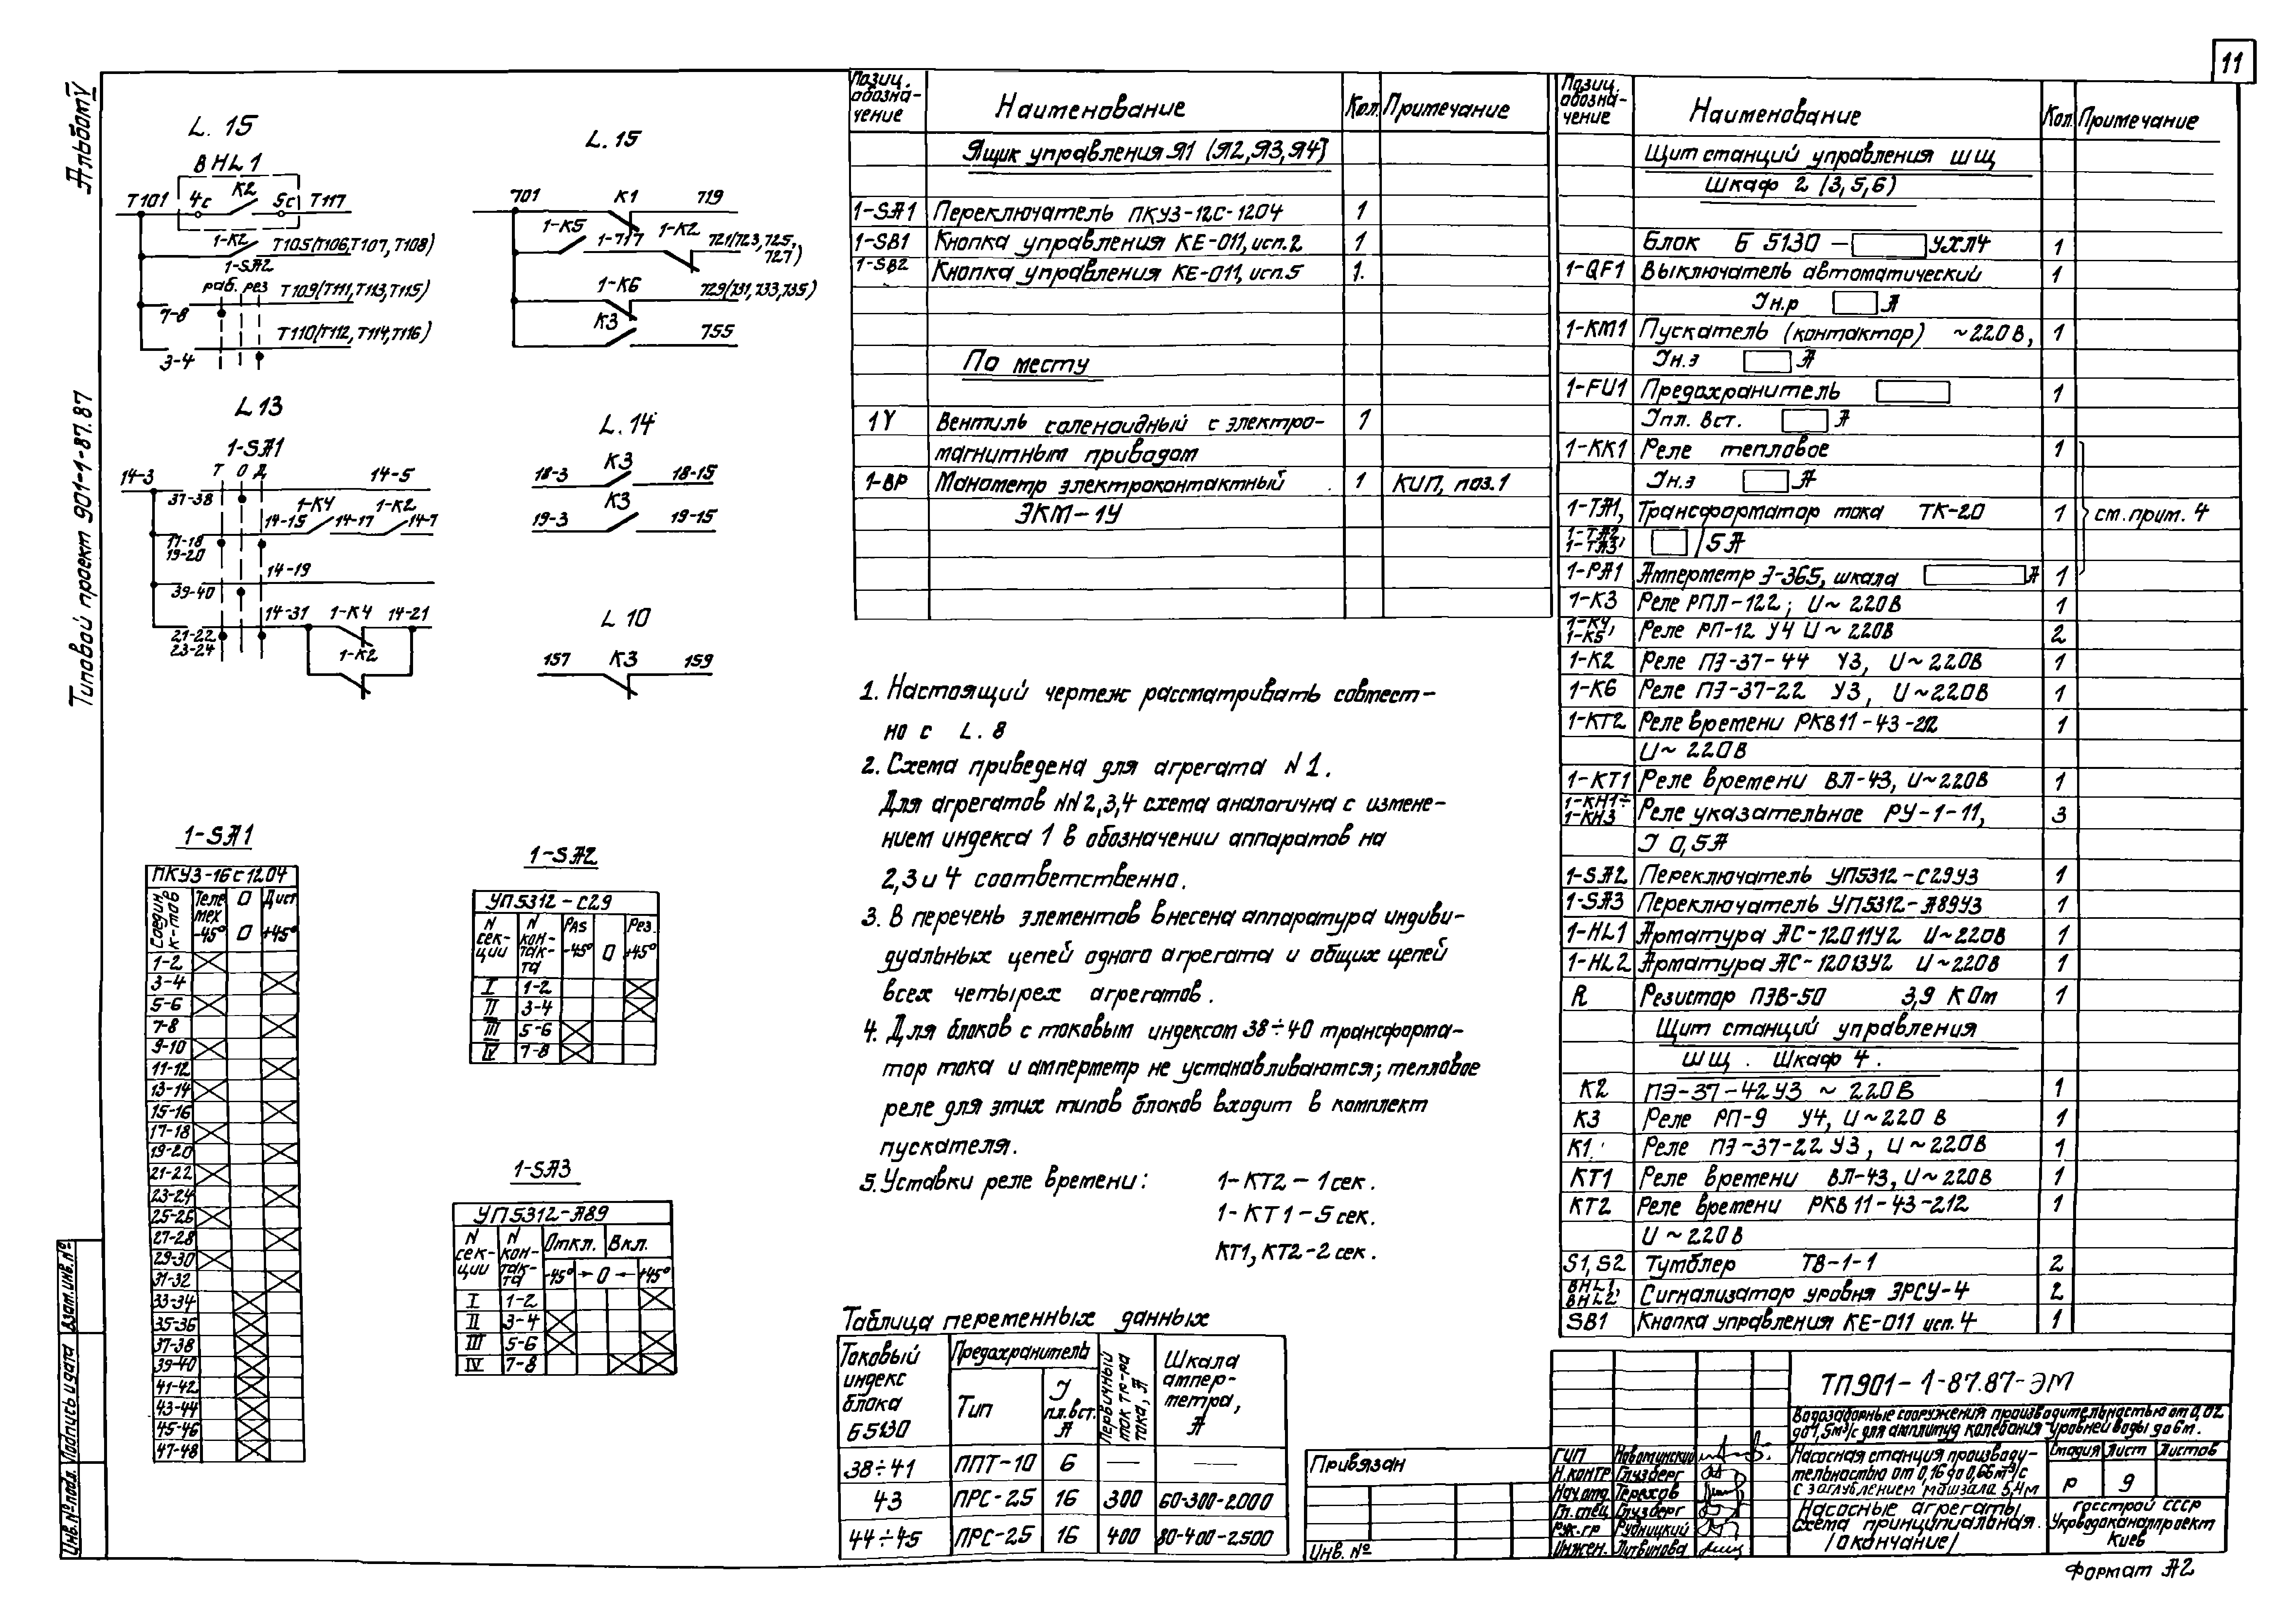 11
Альбом V
Типовой проект 901-1-87.87
L. 15
BHL1
T101 4c K2 5c T117
1-K2 T105(T106,T107,T108)
1-SA2
раб. рез
7-8 T109(T111,T113,T115)
3-4 T110(T112,T114,T116)
L. 15
701 K1 719
1-K5 1-717 1-K2 721(723,725,
727)
1-K6 729(731,733,735)
K3 755
L 13
1-SA1
Т О Д
14-3 37-38 14-5
17-18 19-20 14-15 1-K4 14-17 1-K2 14-7
39-40 14-19
21-22 23-24 14-31 1-K4 14-21
1-K2
L. 14
18-3 K3 18-15
19-3 K3 19-15
L 10
157 K3 159
1-SA1
ПКУ3-16с1204
Соедин. к-тов Теле мех -45° 0 0 Дист +45°
1-2
3-4
5-6
7-8
9-10
11-12
13-14
15-16
17-18
19-20
21-22
23-24
25-26
27-28
29-30
31-32
33-34
35-36
37-38
39-40
41-42
43-44
45-46
47-48
1-SA2
УП5312-С29
N сек-ции N кон-так-та Раб -45° 0 Рез. +45°
I 1-2
II 3-4
III 5-6
IV 7-8
1-SA3
УП5312-А89
N сек-ции N кон-так-та Откл. Вкл.
-45° → 0 ← +45°
I 1-2
II 3-4
III 5-6
IV 7-8
Позиц. обозна-чение Наименование Кол. Примечание
Ящик управления Я1 (Я2,Я3,Я4)
1-SA1 Переключатель ПКУ3-12С-1204 1
1-SB1 Кнопка управления КЕ-011, исп.2 1
1-SB2 Кнопка управления КЕ-011, исп.5 1.
По месту
1Y Вентиль соленоидный с электро- 1
магнитным приводом
1-BP Манометр электроконтактный 1 КИП, поз.1
ЭКМ-1У
1. Настоящий чертеж рассматривать совмест-
но с L. 8
2. Схема приведена для агрегата N1.
Для агрегатов NN2,3,4 схема аналогична с измене-
нием индекса 1 в обозначении аппаратов на
2,3 и 4 соответственно.
3. В перечень элементов внесена аппаратура индиви-
дуальных цепей одного агрегата и общих цепей
всех четырех агрегатов.
4. Для блоков с токовым индексом 38÷40 трансформа-
тор тока и амперметр не устанавливаются; тепловое
реле для этих типов блоков входит в комплект
пускателя.
5. Уставки реле времени: 1-КТ2 – 1 сек.
1-КТ1-5 сек.
КТ1, КТ2-2 сек.
Таблица переменных данных
Токовый индекс блока Б5130 Предохранитель Первичный ток тр-ра тока, А Шкала ампер-метра, А
Тип I пл.вст. А
38÷41 ППТ-10 6 — —
43 ПРС-25 16 300 60-300-2000
44÷45 ПРС-25 16 400 80-400-2500
Позиц. обозна-чение Наименование Кол. Примечание
Щит станций управления ШЩ
Шкаф 2 (3,5,6)
Блок Б 5130 – УХЛ4 1
1-QF1 Выключатель автоматический 1
Iн.р А
1-KM1 Пускатель (контактор) ~220В, 1
Iн.э А
1-FU1 Предохранитель 1
Iпл. вст. А
1-KK1 Реле тепловое 1
Iн.э А
1-TA1, Трансформатор тока ТК-20 1 см. прим. 4
1-TA2, 1-TA3, /5А
1-PA1 Амперметр Э-365, шкала А 1
1-K3 Реле РПЛ-122; U~220В 1
1-K4, 1-K5, Реле РП-12 У4 U~220В 2
1-K2 Реле ПЭ-37-44 У3, U~220В 1
1-K6 Реле ПЭ-37-22 У3, U~220В 1
1-KT2 Реле времени РКВ11-43-212 1
U~220В
1-KT1 Реле времени ВЛ-43, U~220В 1
1-KH1÷ 1-KH3 Реле указательное РУ-1-11, 3
I 0,5А
1-SA2 Переключатель УП5312-С29У3 1
1-SA3 Переключатель УП5312-А89У3 1
1-HL1 Арматура АС-12011У2 U~220В 1
1-HL2 Арматура АС-12013У2 U~220В 1
R Резистор ПЭВ-50 3,9 КОм 1
Щит станций управления
ШЩ. Шкаф 4.
K2 ПЭ-37-42У3 ~220В 1
K3 Реле РП-9 У4, U~220 В 1
K1 Реле ПЭ-37-22 У3, U~220В 1
KT1 Реле времени ВЛ-43, U~220В 1
KT2 Реле времени РКВ11-43-212 1
U~220В
S1, S2 Тумблер ТВ-1-1 2
BHL1, BHL2, Сигнализатор уровня ЭРСУ-4 2
SB1 Кнопка управления КЕ-011 исп. 4 1
ТП901-1-87.87-ЭМ
Водозаборные сооружения производительностью от 0,02
до 1,5м³/с для амплитуд колебания уровней воды до 6м.
Насосная станция производи-
тельностью от 0,16 до 0,66 м³/с
с заглублением машзала 5,4м
Стадия Лист Листов
Р 9
Насосные агрегаты
Схема принципиальная.
/окончание/
Госстрой СССР
Укрводоканалпроект
Киев
ГИП Новоминский
Н.контр Глузберг
Нач.отд Терехов
Гл.спец Глузберг
Рук.гр Рудницкий
Инжен. Литвинова
Привязан
Инв. №
Взам.инв.№
Подпись и дата
Инв.№ подл.
Формат А2